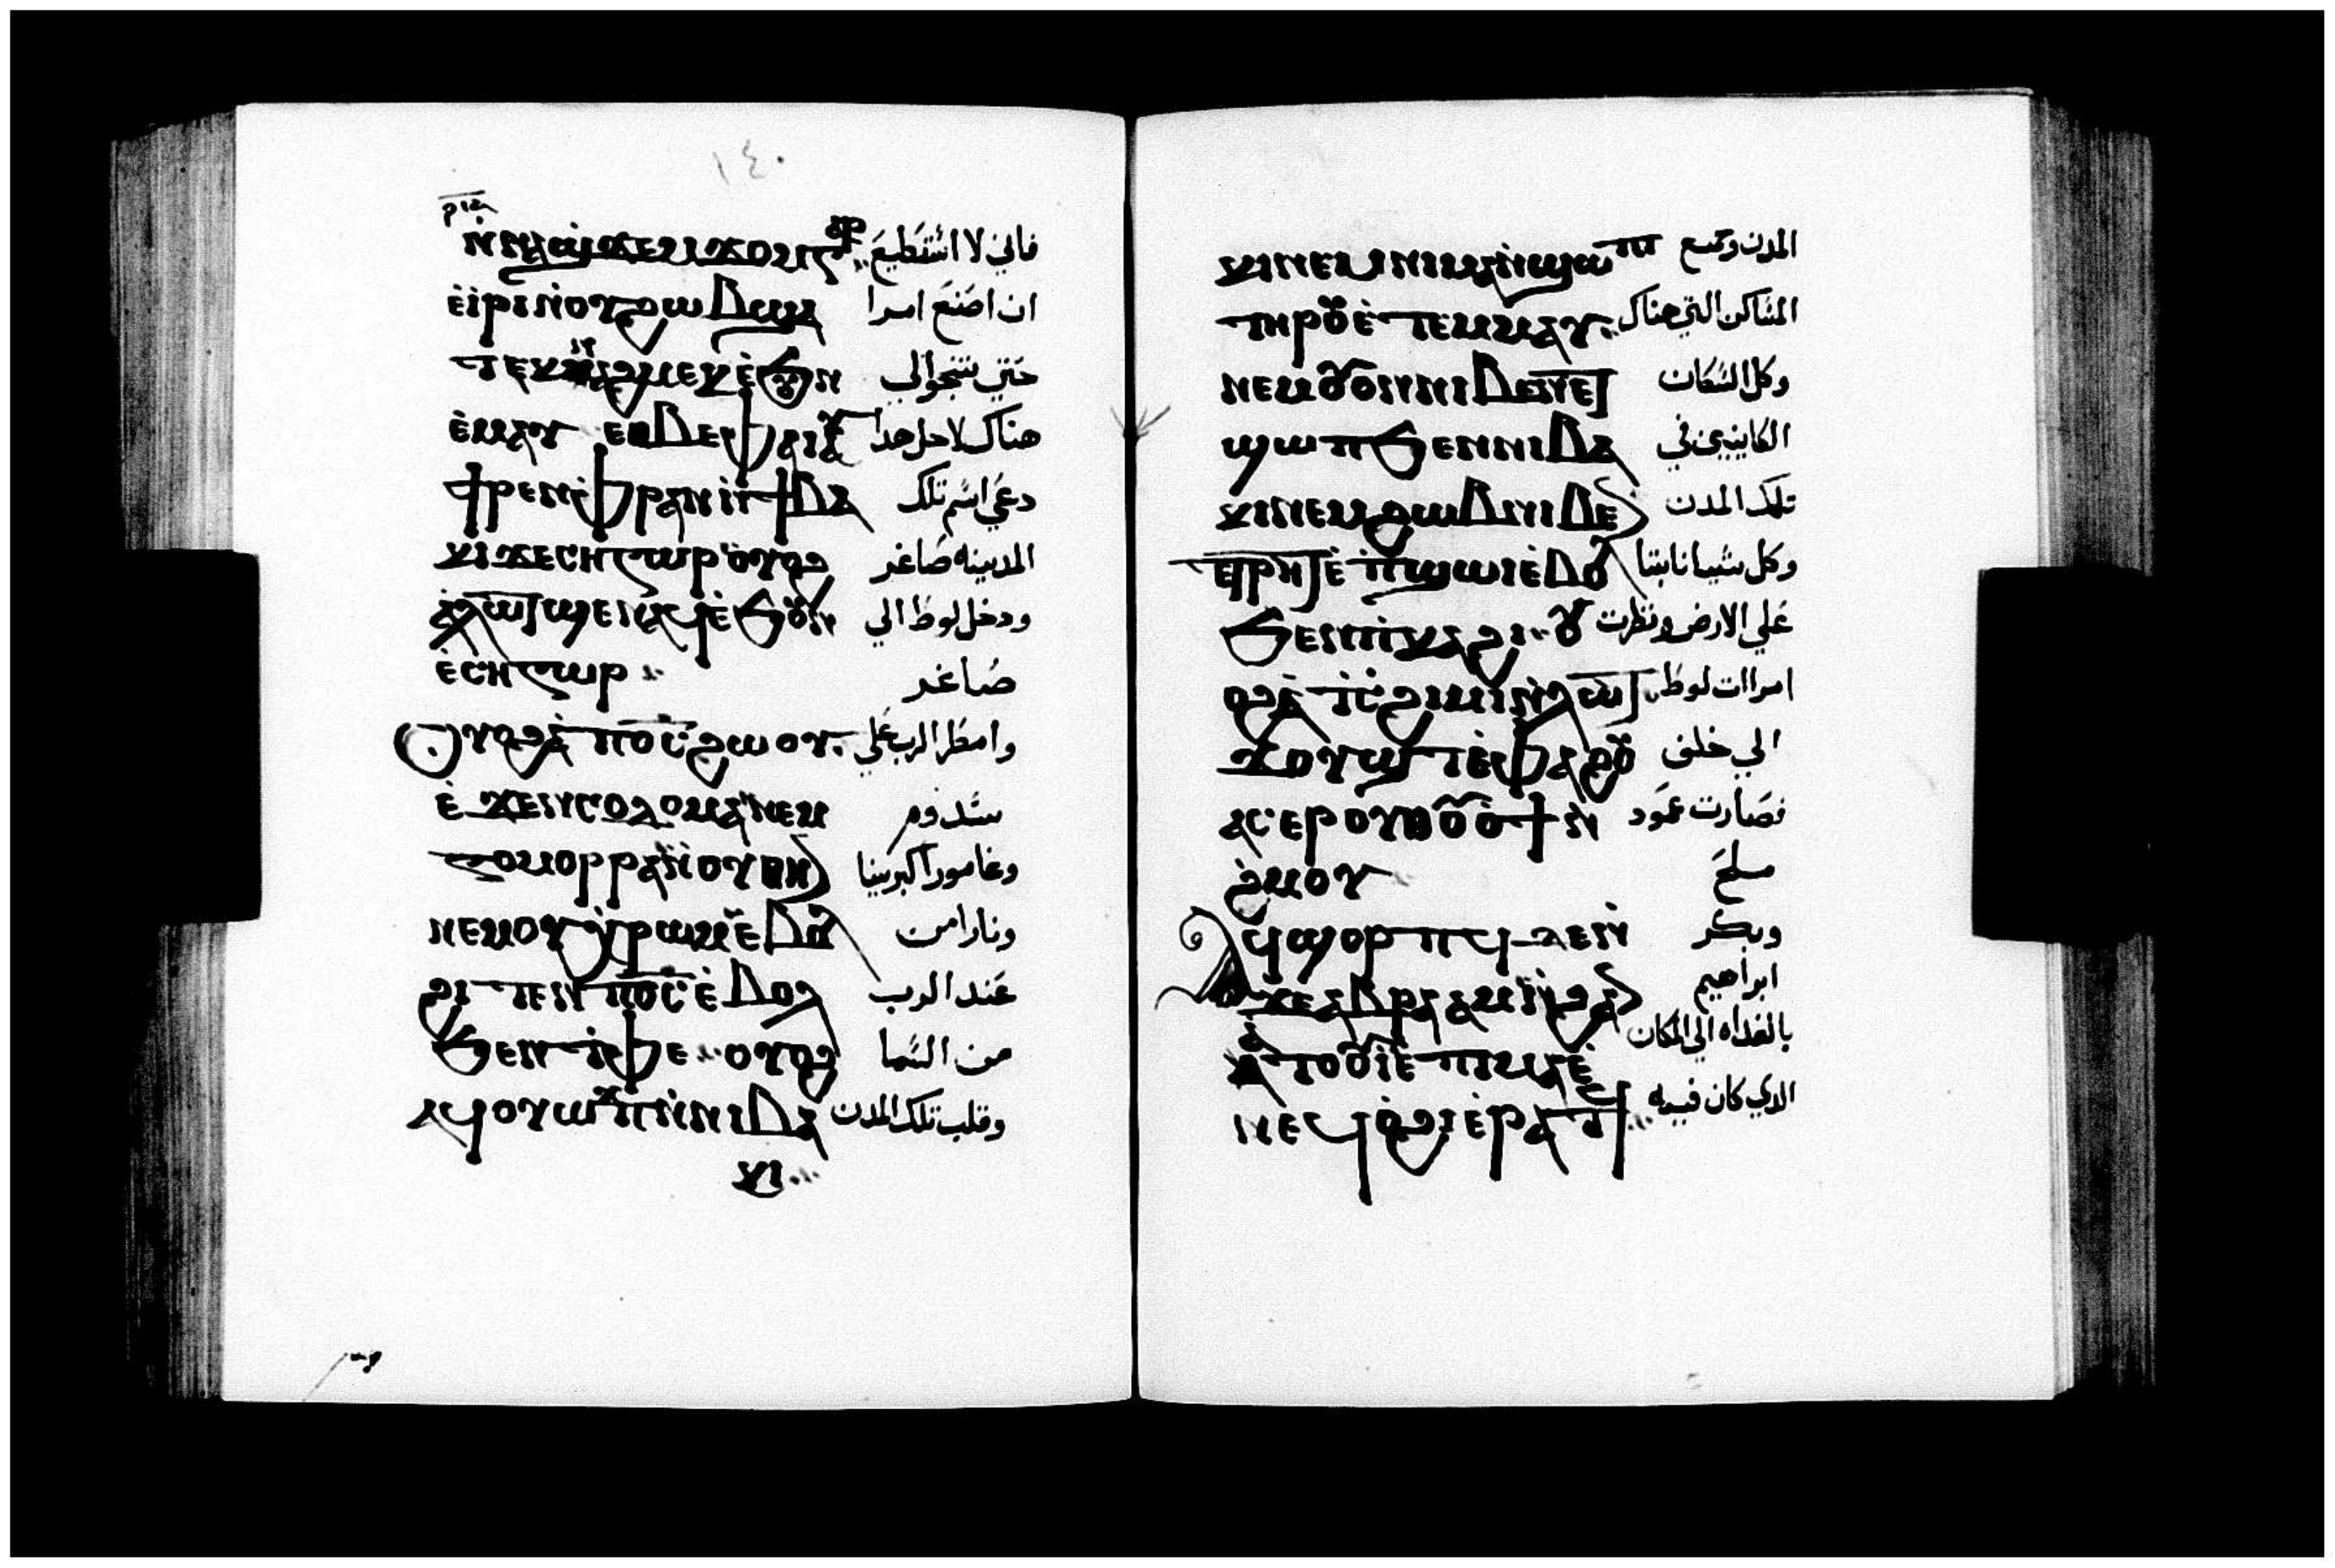 ١٤٠
ⲛⲛⲁϣϫⲉⲙϫⲟⲙ ⲅⲁⲣ فاني لا استطيع
ⲉ̀ⲓⲣⲓ ⲛ̀ⲟⲩϩⲱⲃ ϣⲁ ان اصنع امرا
ⲧⲉⲕ ⲉ̀ϧⲟⲩⲛ حتي تنجوا الي
ⲉ̀ⲙⲁⲩ ⲉⲑⲃⲉⲫⲁⲓ ⲁⲩ هناك لاجل هدا
ϯⲣⲉⲛ ⲫ̀ⲣⲁⲛ ⲛ̀ϯⲃⲁ دعي اسم تلك
ⲕⲓ ϫⲉ ⲥⲏⲅⲱⲣ ⲟⲩⲟϩ المدينه صاغر
ⲁ̀ⲗⲱⲧ ϣⲉⲛⲁϥ ⲉ̀ϧⲟⲩⲛ ودخل لوط الي
ⲉ̀ⲥⲏⲅⲱⲣ صاغر
ⲟⲩⲟϩ ⲁ̀ⲡⲟ̅ⲥ̅ ϩⲱⲟⲩ وامطر الرب علي
ⲉ̀ϫⲉⲛ ⲥⲟⲇⲟⲙⲁ ⲛⲉⲙ سدوم
ⲅⲟⲙⲟⲣⲣⲁ ⲛ̀ⲟⲩⲑⲏⲛ وغامورا كبريتا
ⲛⲉⲙ ⲟⲩⲭ̀ⲣⲱⲙ ⲉ̀ⲃⲟⲗ ونارا من
ϩⲓⲧⲉⲛ ⲡⲟ̅ⲥ̅ ⲉ̀ⲃⲟⲗ عند الرب
ϧⲉⲛ ⲧ̀ⲫⲉ ⲟⲩⲟϩ من السما
ⲁϥⲟⲩⲱϫⲡ ⲛ̀ⲛⲓⲃⲁ وقلب تلك المدن
ⲕⲓ
ⲕⲓ ⲛⲉⲙ ⲛⲓⲙⲁⲛ̀ϣⲱⲡⲓ المدن وجميع
ⲧⲏⲣⲟⲩ ⲉ̀ⲧⲉⲙⲙⲁⲩ المساكن التي هناك
ⲛⲉⲙ ⲟⲩⲟⲛ ⲛⲓⲃⲉⲛ ⲉⲧ وكل السكان
ϣⲱⲡ ϧⲉⲛ ⲛⲓⲃⲁ الكاينين في
ⲕⲓ ⲛⲉⲙ ϩⲱⲃ ⲛⲓⲃⲉⲛ تلك المدن
ⲉⲧⲣⲏⲧ ⲉ̀ⲡ̀ϣⲱⲓ ⲉ̀ⲃⲟⲗ وكل شيا نابتا
ϧⲉⲛ ⲡ̀ⲕⲁϩⲓ ⲟⲩ علي الارض ونظرت
ⲟϩ ⲁ̀ ⲧ̀ⲥ̀ϩⲓⲙⲓ ⲛ̀ⲗⲱⲧ امراات لوط
ϫⲟⲩϣⲧ ⲉ̀ⲫⲁϩⲟⲩ الي خلف
ⲁⲥⲉⲣ ⲟⲩⲑⲟⲩⲟ̀ϯ ⲛ̀ فصارت عمود
ϩ̀ⲙⲟⲩ ملح
ⲁϥϣⲟⲣⲡϥ ⲇⲉ ⲛ̀ وبكر
ϫⲉ ⲁⲃⲣⲁⲁⲙ ⲛ̀ϩⲁⲛ ابراهيم
ⲁ̀ⲧⲟⲟⲩⲓ̀ ⲉ̀ⲡⲓⲙⲁ ⲉ̀ بالغداه الي المكان
ⲛⲉϥⲟ̀ϩⲓ ⲉ̀ⲣⲁⲧϥ الدي كان فيه